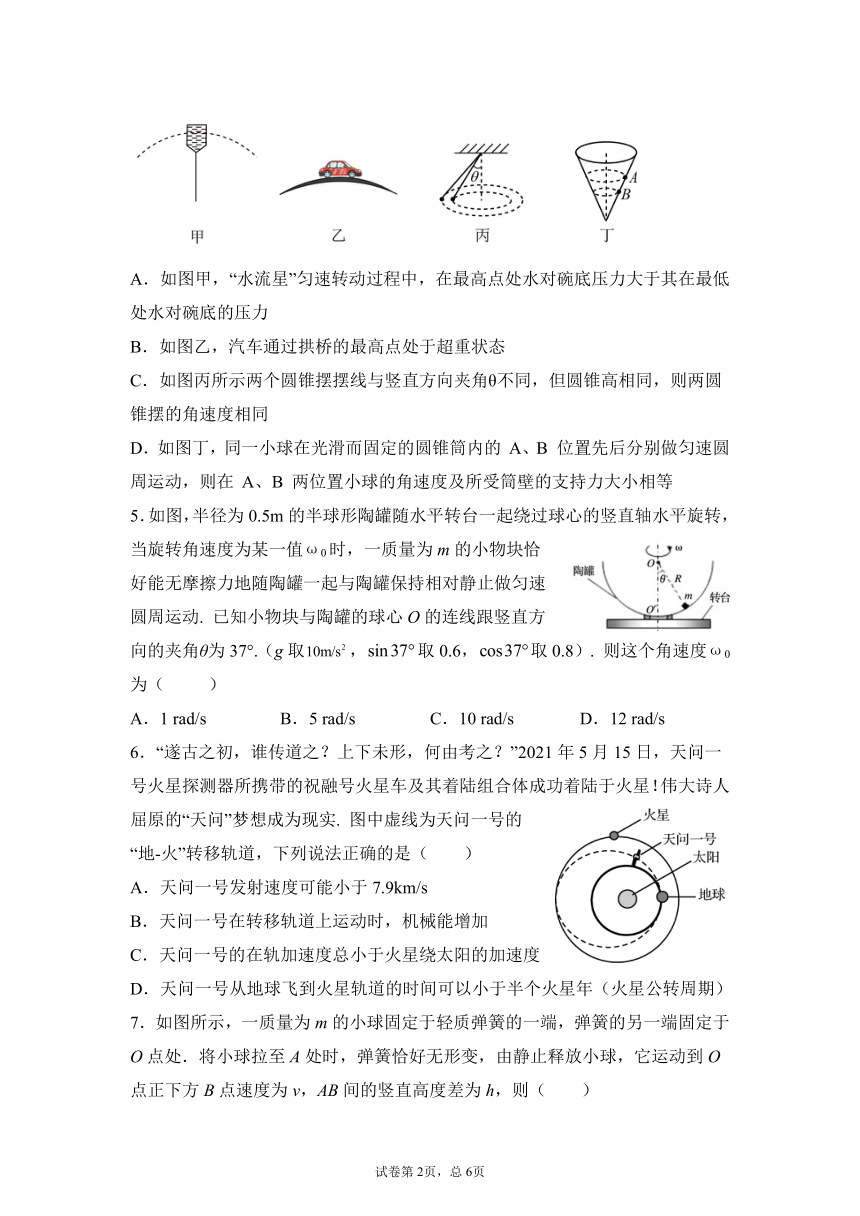 θ
A
B
甲
乙
丙
丁
A．如图甲，“水流星”匀速转动过程中，在最高点处水对碗底压力大于其在最低
处水对碗底的压力
B．如图乙，汽车通过拱桥的最高点处于超重状态
C．如图丙所示两个圆锥摆摆线与竖直方向夹角θ不同，但圆锥高相同，则两圆
锥摆的角速度相同
D．如图丁，同一小球在光滑而固定的圆锥筒内的 A、B 位置先后分别做匀速圆
周运动，则在 A、B 两位置小球的角速度及所受筒壁的支持力大小相等
5．如图，半径为 0.5m 的半球形陶罐随水平转台一起绕过球心的竖直轴水平旋转，
当旋转角速度为某一值ω₀时，一质量为 m 的小物块恰
好能无摩擦力地随陶罐一起与陶罐保持相对静止做匀速
圆周运动. 已知小物块与陶罐的球心 O 的连线跟竖直方
ω
O
陶罐
θ
R
m
转台
O'
向的夹角θ为 37°.（g 取10m/s²，sin37°取 0.6，cos37°取 0.8）. 则这个角速度ω₀
为（　　）
A．1 rad/s B．5 rad/s C．10 rad/s D．12 rad/s
6．“遂古之初，谁传道之？上下未形，何由考之？”2021 年 5 月 15 日，天问一
号火星探测器所携带的祝融号火星车及其着陆组合体成功着陆于火星！伟大诗人
屈原的“天问”梦想成为现实. 图中虚线为天问一号的
“地-火”转移轨道，下列说法正确的是（　　）
A．天问一号发射速度可能小于 7.9km/s
B．天问一号在转移轨道上运动时，机械能增加
C．天问一号的在轨加速度总小于火星绕太阳的加速度
火星
天问一号
太阳
地球
D．天问一号从地球飞到火星轨道的时间可以小于半个火星年（火星公转周期）
7．如图所示，一质量为 m 的小球固定于轻质弹簧的一端，弹簧的另一端固定于
O 点处．将小球拉至 A 处时，弹簧恰好无形变，由静止释放小球，它运动到 O
点正下方 B 点速度为 v，AB 间的竖直高度差为 h，则（　　）
试卷第 2页，总 6页